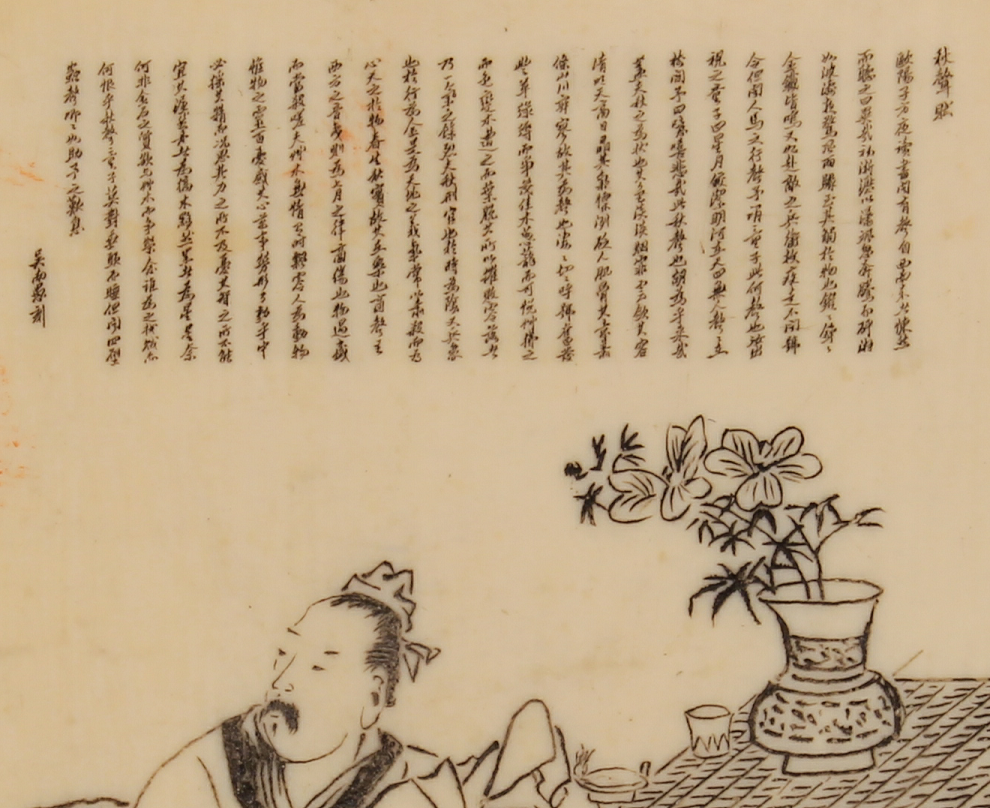 秋聲賦
歐陽子方夜讀書聞有聲自西南來者悚然
而聽之曰異哉初淅瀝以蕭颯忽奔騰而砰湃
如波濤夜驚風雨驟至其觸於物也鏦鏦錚錚
金鐵皆鳴又如赴敵之兵銜枚疾走不聞號
令但聞人馬之行聲予謂童子此何聲也汝出
視之童子曰星月皎潔明河在天四無人聲聲在
樹間予曰噫嘻悲哉此秋聲也胡為乎來哉
蓋夫秋之為狀也其色慘淡煙霏雲斂其容
清明天高日晶其氣慄冽砭人肌骨其意蕭
條山川寂寥故其為聲也淒淒切切呼號奮發
豐草綠縟而爭茂佳木蔥蘢而可悅草拂之
而色變木遭之而葉脫其所以摧敗零落者
乃一氣之餘烈夫秋刑官也於時為陰又兵象
也於行為金是謂天地之義氣常以肅殺而為
心天之於物春生秋實故其在樂也商聲主
西方之音夷則為七月之律商傷也物過盛
而當殺嗟夫草木無情有時飄零人為動物
惟物之靈百憂感其心萬事勞其形有動乎中
必搖其精而況思其力之所不及憂其智之所不能
宜其渥然丹者為槁木黟然黑者為星星奈
何非金石之質欲與草木而爭榮念誰為之戕賊亦
何恨乎秋聲童子莫對垂頭而睡但聞四壁
蟲聲唧唧如助予之歎息
吳南 刻